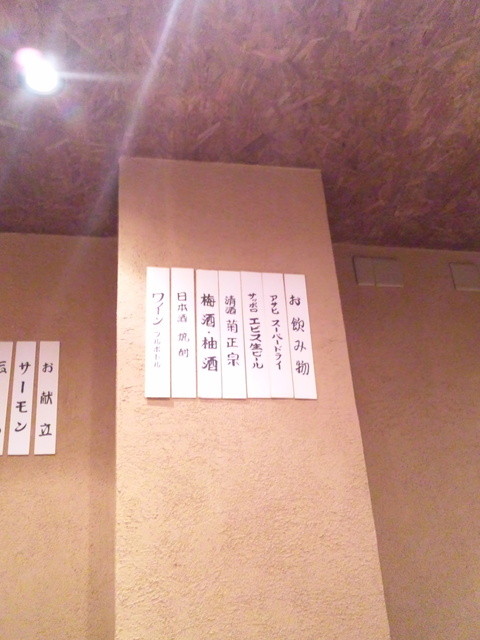 お飲み物
アサヒ スーパードライ
サッポロ ヱビス生ビール
清酒 菊正宗
梅酒・柚酒
日本酒 焼酎
ワイン フルボトル
お献立
サーモン